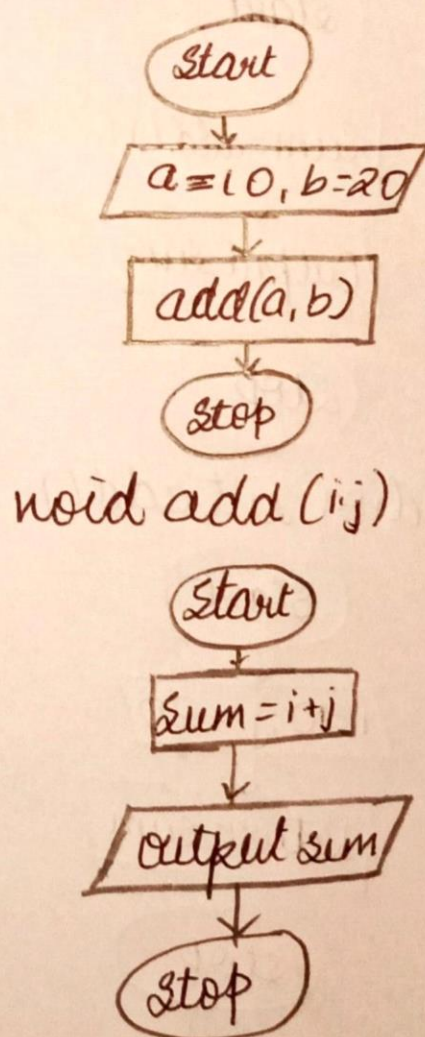 Start
a=10, b=20
add(a,b)
Stop
void add (i,j)
Start
Sum=i+j
output sum
Stop